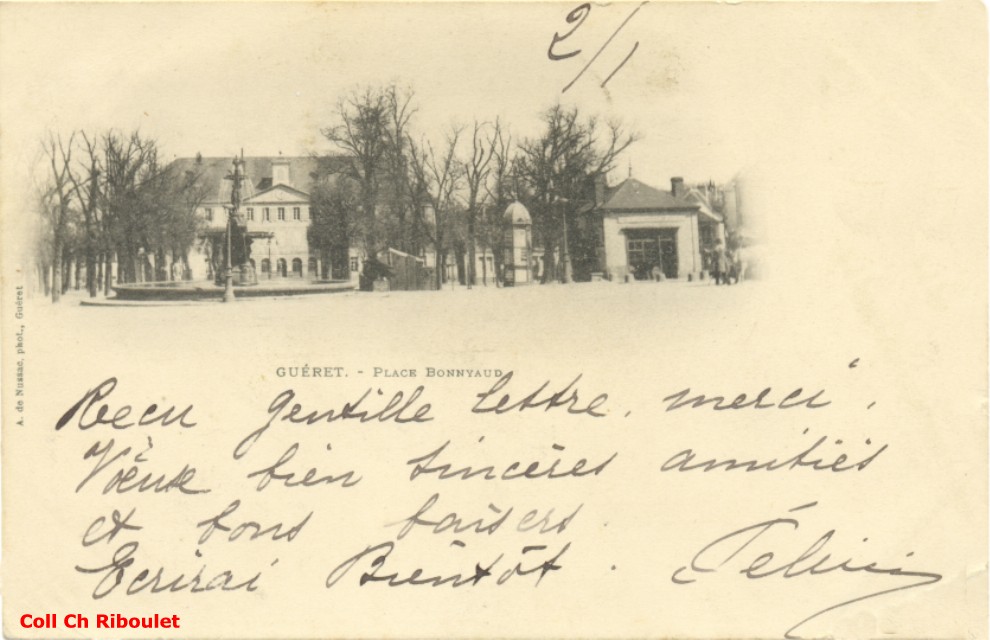 2/1
A. de Nussac, phot., Guéret
GUÉRET. - PLACE BONNYAUD
Recu Gentille lettre, merci,
Vœux bien sincères amitiés
et bons baisers.
Ecrirai Bientôt.
Coll Ch Riboulet